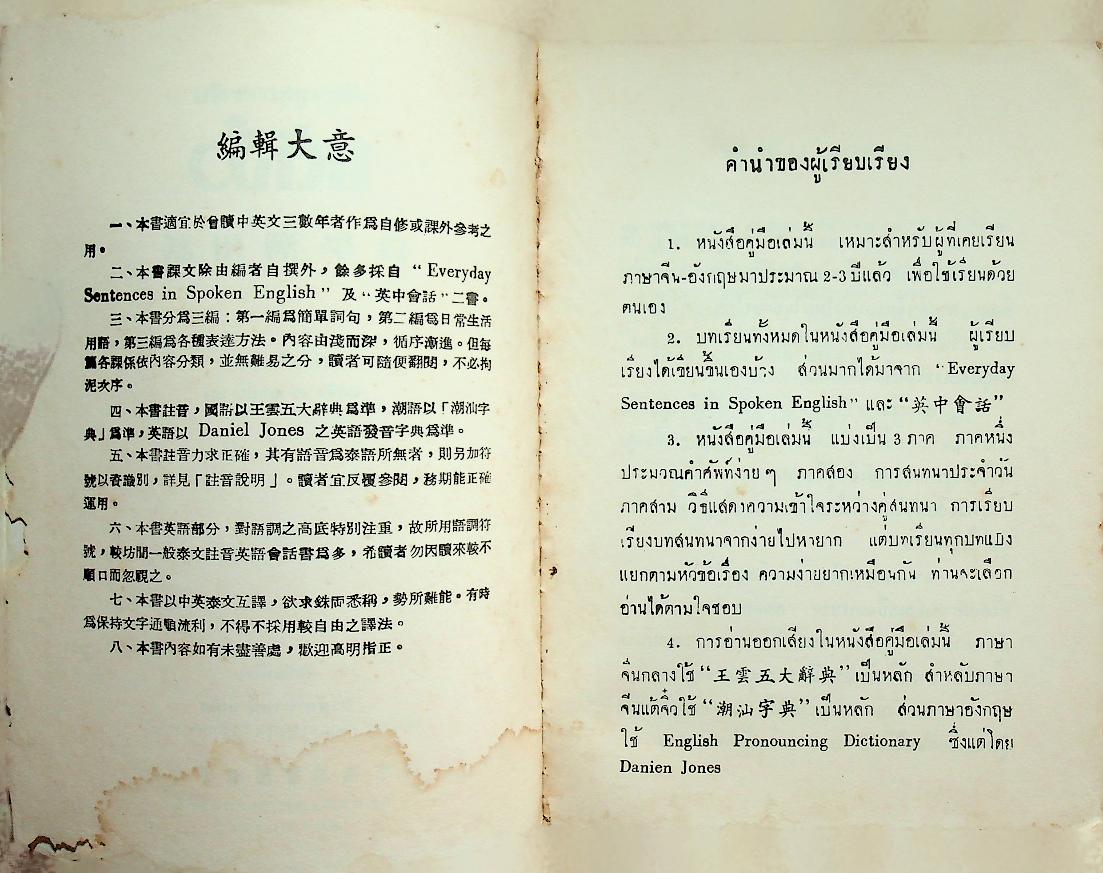 編輯大意
一、本書適宜於曾讀中英文三數年者作爲自修或課外參考之
用。
二、本書課文除由編者自撰外，餘多採自 “Everyday
Sentences in Spoken English” 及 “英中會話” 二書。
三、本書分爲三編：第一編爲簡單詞句，第二編爲日常生活
用語，第三編爲各種表達方法。內容由淺而深，循序漸進。但每
篇各課係依內容分類，並無難易之分，讀者可隨便翻閱，不必拘
泥次序。
四、本書註音，國語以王雲五大辭典爲準，潮語以「潮汕字
典」爲準，英語以 Daniel Jones 之英語發音字典爲準。
五、本書註音力求正確，其有語音爲泰語所無者，則另加符
號以資識別，詳見「註音說明」。讀者宜反覆參閱，務期能正確
運用。
六、本書英語部分，對語調之高底特別注重，故所用語調符
號，較坊間一般泰文註音英語會話書爲多，希讀者勿因讀來較不
順口而忽視之。
七、本書以中英泰文互譯，欲求銖両悉稱，勢所難能。有時
爲保持文字通順流利，不得不採用較自由之譯法。
八、本書內容如有未盡善處，歡迎高明指正。
คำนำของผู้เรียบเรียง
1. หนังสือคู่มือเล่มนี้ เหมาะสำหรับผู้ที่เคยเรียน
ภาษาจีน-อังกฤษมาประมาณ 2-3 ปีแล้ว เพื่อใช้เรียนด้วย
ตนเอง
2. บทเรียนทั้งหมดในหนังสือคู่มือเล่มนี้ ผู้เรียบ
เรียงได้เขียนขึ้นเองบ้าง ส่วนมากได้มาจาก “Everyday
Sentences in Spoken English” และ “英中會話”
3. หนังสือคู่มือเล่มนี้ แบ่งเป็น 3 ภาค ภาคหนึ่ง
ประมวณคำศัพท์ง่าย ๆ ภาคสอง การสนทนาประจำวัน
ภาคสาม วิธีแสดงความเข้าใจระหว่างคู่สนทนา การเรียบ
เรียงบทสนทนาจากง่ายไปหายาก แต่บทเรียนทุกบทแบ่ง
แยกตามหัวข้อเรื่อง ความง่ายยากเหมือนกัน ท่านจะเลือก
อ่านได้ตามใจชอบ
4. การอ่านออกเสียงในหนังสือคู่มือเล่มนี้ ภาษา
จีนกลางใช้ “王雲五大辭典” เป็นหลัก สำหลับภาษา
จีนแต้จิ๋วใช้ “潮汕字典” เป็นหลัก ส่วนภาษาอังกฤษ
ใช้ English Pronouncing Dictionary ซึ่งแต่โดย
Danien Jones